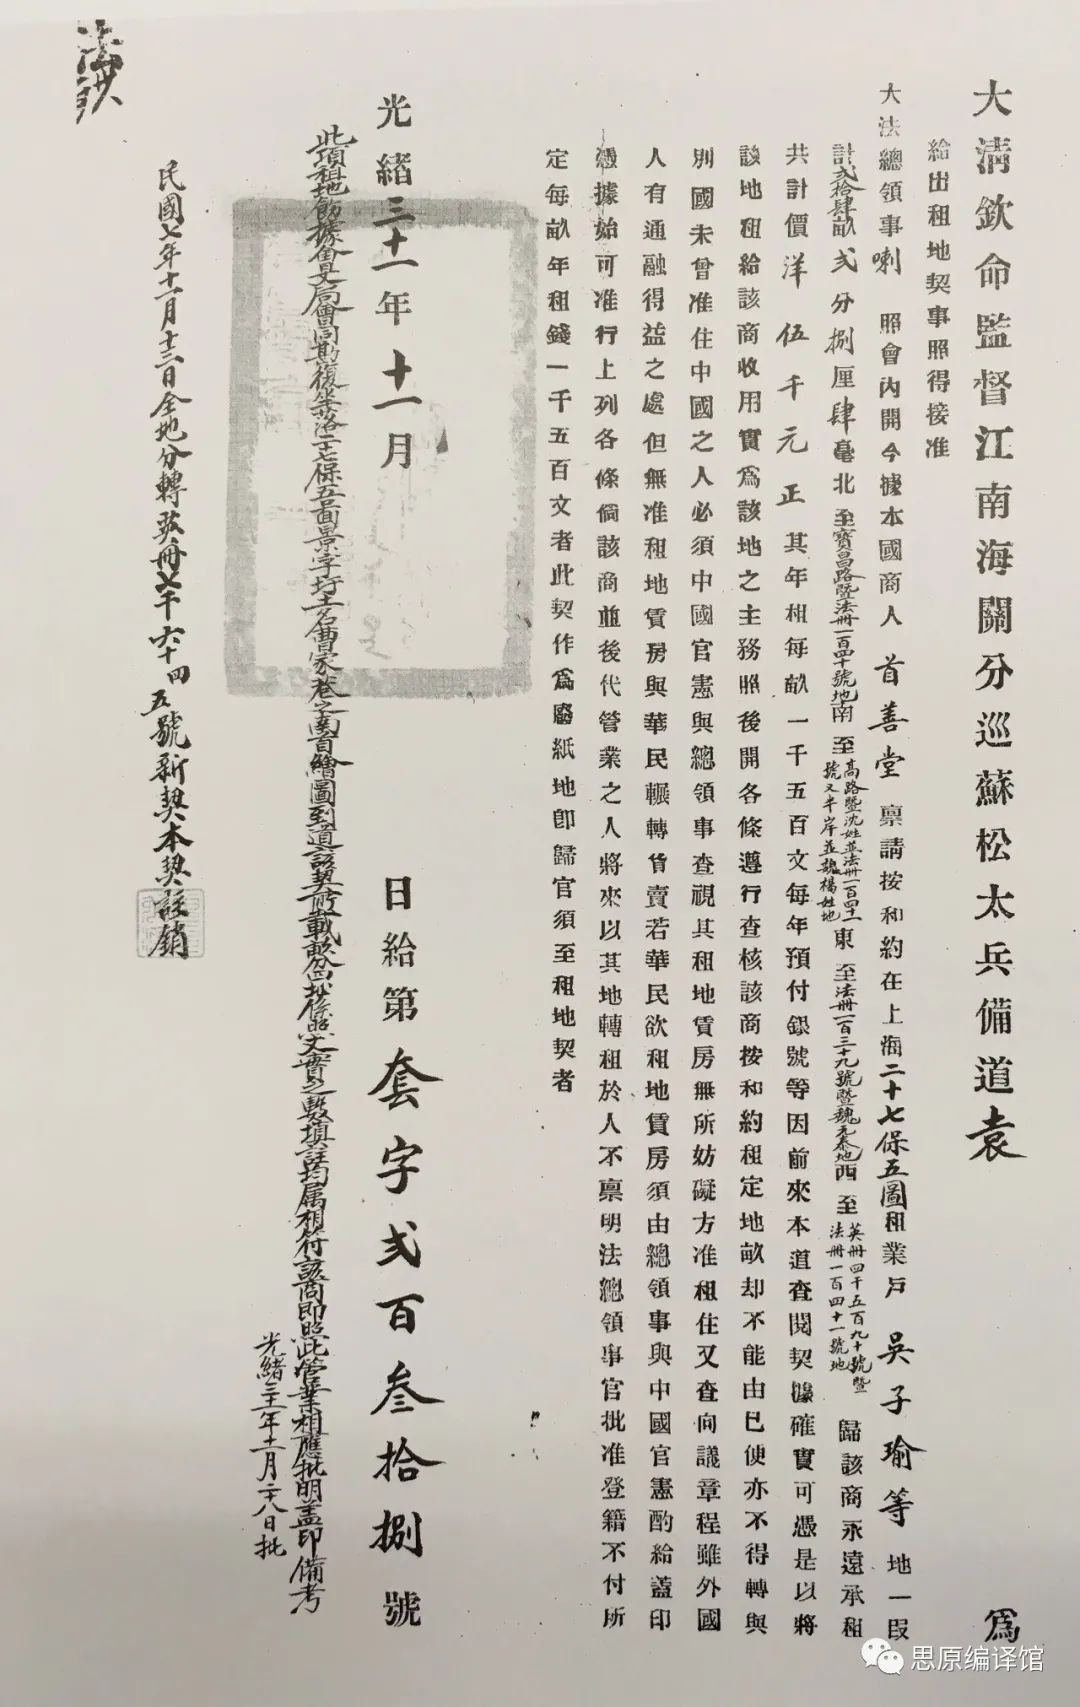 大清欽命監督江南海關分巡蘇松太兵備道袁 為
給出租地契事照得接准
大法總領事喇 照會內開今據本國商人首善堂稟請按和約在上海二十七保五圖租業戶吳子瑜等地一段
計弍拾肆畝弍分捌厘肆毫北至寶昌路暨法冊一百四十號地南至高路暨沈姓並法冊一百四十一號又半岸並魏楊姓地東至法冊一百三十九號暨魏元泰地西至英冊四千五百九十號暨法冊一百四十一號地歸該商永遠承租
共計價洋伍千元正其年租每畝一千五百文每年預付銀號等因前來本道查閱契據確實可憑是以將
該地租給該商收用實為該地之主務照後開各條遵行查核該商按和約租定地畝却不能由己便亦不得轉與
別國未曾准住中國之人必須中國官憲與總領事查視其租地賃房無所妨礙方准租住又查向議章程雖外國
人有通融得益之處但無准租地賃房與華民輾轉貨賣若華民欲租地賃房須由總領事與中國官憲酌給蓋印
憑據始可准行上列各條倘該商並後代管業之人將來以其地轉租於人不稟明法總領事官批准登籍不付所
定每畝年租錢一千五百文者此契作為廢紙地即歸官須至租地契者
光緒三十一年十一月 日給第套字弍百叁拾捌號
此項租地飭據會丈局會同勘復坐落二十七保五圖景字圩土名曹家巷之南首繪圖到道該契所載畝分四址係照丈實之數填註均屬相符該商即照此管業相應批明蓋印備考
光緒三十一年十一月二十八日批
民國七年十一月十三日全地分轉英冊七千六十四五號新契本契註銷
思原编译馆